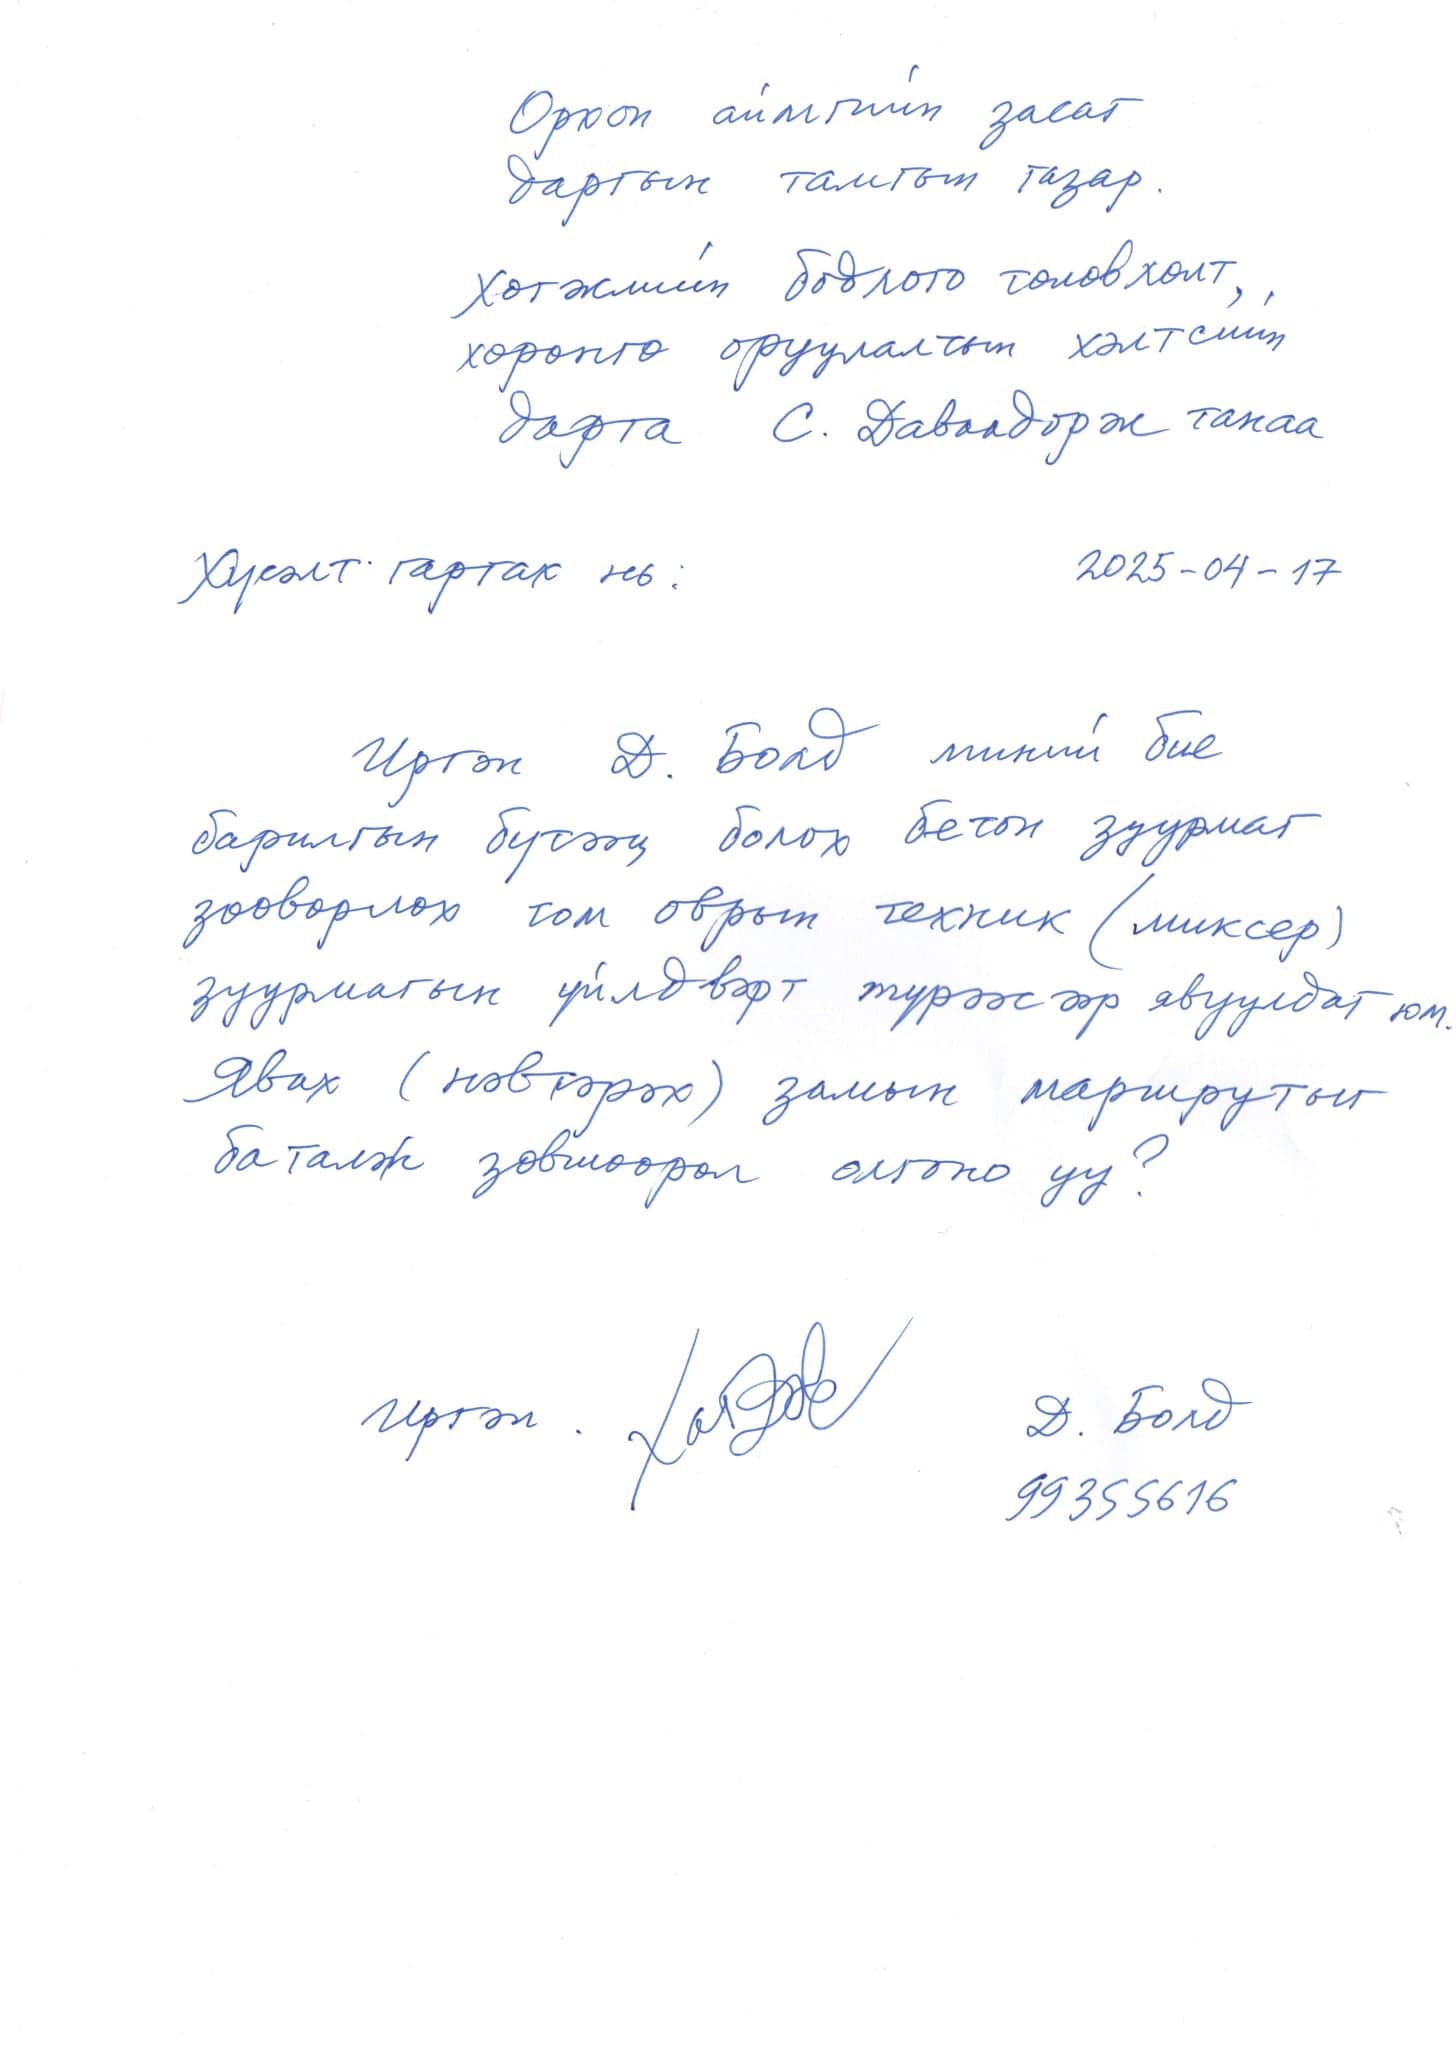 Орхон аймгийн засаг
даргын тамгын газар.
Хөгжлийн бодлого төлөвлөлт,
хөрөнгө оруулалтын хэлтсийн
дарга С. Даваадорж танаа
Хүсэлт гаргах нь: 2025-04-17
Иргэн Д. Болд миний бие
барилгын бүтээц болох бетон зуурмаг
зөөвөрлөх том оврын техник (миксер)
зуурмагын үйлдвэрт түрээсээр явуулдаг юм.
Явах (нэвтэрэх) замын маршрутыг
баталж зөвшөөрөл олгоно уу?
Иргэн. Д. Болд
99355616